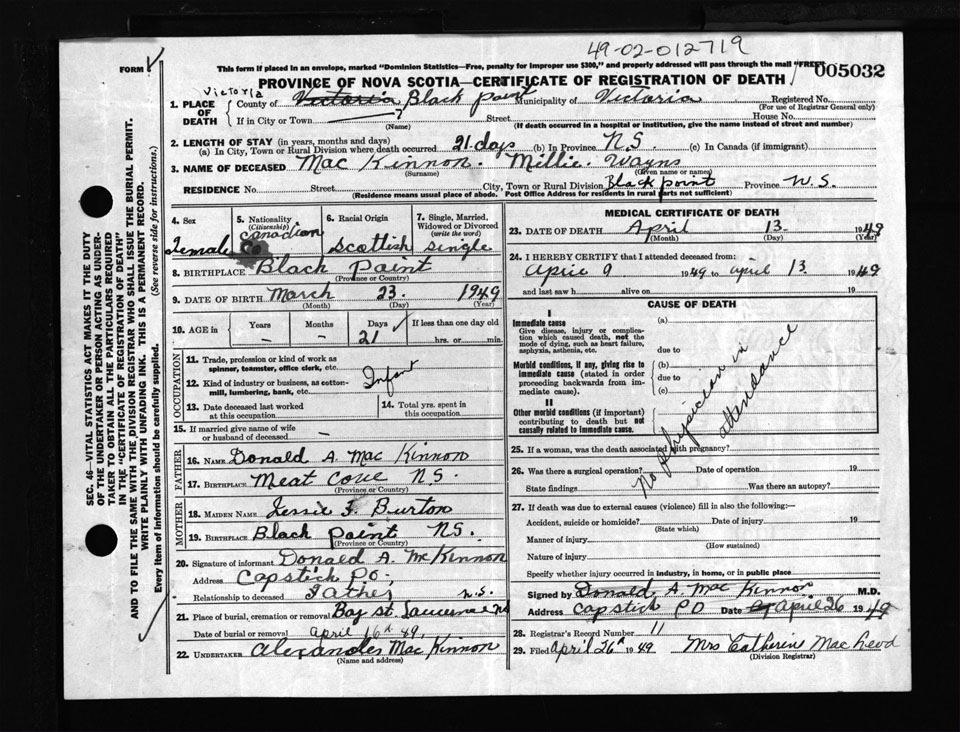 49-02-012719
FORM
This form if placed in an envelope, marked "Dominion Statistics—Free, penalty for improper use $300," and properly addressed will pass through the mail "FREE"
005032
PROVINCE OF NOVA SCOTIA—CERTIFICATE OF REGISTRATION OF DEATH
Victoria
1. PLACE OF DEATH County of Victoria Black Point Municipality of Victoria Registered No.
(For use of Registrar General only)
If in City or Town Street House No.
(Name) (If death occurred in a hospital or institution, give the name instead of street and number)
2. LENGTH OF STAY (in years, months and days)
(a) In City, Town or Rural Division where death occurred 21 days (b) In Province N.S. (c) In Canada (if immigrant)
3. NAME OF DECEASED Mac Kinnon. Millie. Wayns
(Surname) (Given name or names)
RESIDENCE No. Street City, Town or Rural Division Black point Province N.S.
(Residence means usual place of abode. Post Office Address for residents in rural parts not sufficient)
4. Sex Female
5. Nationality (Citizenship) Canadian
6. Racial Origin Scottish
7. Single, Married, Widowed or Divorced (write the word) single
8. BIRTHPLACE Black Point
(Province or Country)
9. DATE OF BIRTH March 23. 1949
(Month) (Day) (Year)
10. AGE in Years Months Days If less than one day old
– – 21 hrs. or min.
OCCUPATION
11. Trade, profession or kind of work as spinner, teamster, office clerk, etc.
Infant
12. Kind of industry or business, as cotton-mill, lumbering, bank, etc.
13. Date deceased last worked at this occupation
14. Total yrs. spent in this occupation
15. If married give name of wife or husband of deceased —
FATHER
16. NAME Donald A. Mac Kinnon
17. BIRTHPLACE Meat Cove N.S.
(Province or Country)
MOTHER
18. MAIDEN NAME Jessie F. Burton
19. BIRTHPLACE Black Point N.S.
(Province or Country)
20. Signature of informant Donald A. McKinnon
Address Capstick P.O.
Relationship to deceased Father N.S.
21. Place of burial, cremation or removal Bay St. Lawrence NS
Date of burial or removal April 16th 49.
22. UNDERTAKER Alexander Mac Kinnon
(Name and address)
MEDICAL CERTIFICATE OF DEATH
23. DATE OF DEATH April 13. 1949
(Month) (Day) (Year)
24. I HEREBY CERTIFY that I attended deceased from:
April 9 1949 to April 13 1949
and last saw h alive on 19
CAUSE OF DEATH
I
Immediate cause (a)
Give disease, injury or complication which caused death, not the mode of dying, such as heart failure, asphyxia, asthenia, etc.
due to
Morbid conditions, if any, giving rise to immediate cause (stated in order proceeding backwards from immediate cause).
(b)
due to
(c)
II
Other morbid conditions (if important) contributing to death but not causally related to immediate cause.
No physician in attendance
25. If a woman, was the death associated with pregnancy?
26. Was there a surgical operation? Date of operation 19
State findings Was there an autopsy?
27. If death was due to external causes (violence) fill in also the following:—
Accident, suicide or homicide? Date of injury 19
(State which)
Manner of injury
(How sustained)
Nature of injury
Specify whether injury occurred in industry, in home, or in public place
Signed by Donald A. Mac Kinnon M.D.
Address Capstick PO Date April 26 1949
28. Registrar's Record Number 11
29. Filed April 26th 1949 Mrs Catherine MacLeod
(Division Registrar)
SEC. 46—VITAL STATISTICS ACT MAKES IT THE DUTY
OF THE UNDERTAKER OR PERSON ACTING AS UNDER-
TAKER TO OBTAIN ALL THE PARTICULARS REQUIRED
IN THE "CERTIFICATE OF REGISTRATION OF DEATH"
AND TO FILE THE SAME WITH THE DIVISION REGISTRAR WHO SHALL ISSUE THE BURIAL PERMIT.
WRITE PLAINLY WITH UNFADING INK. THIS IS A PERMANENT RECORD.
Every item of information should be carefully supplied. (See reverse side for instructions.)